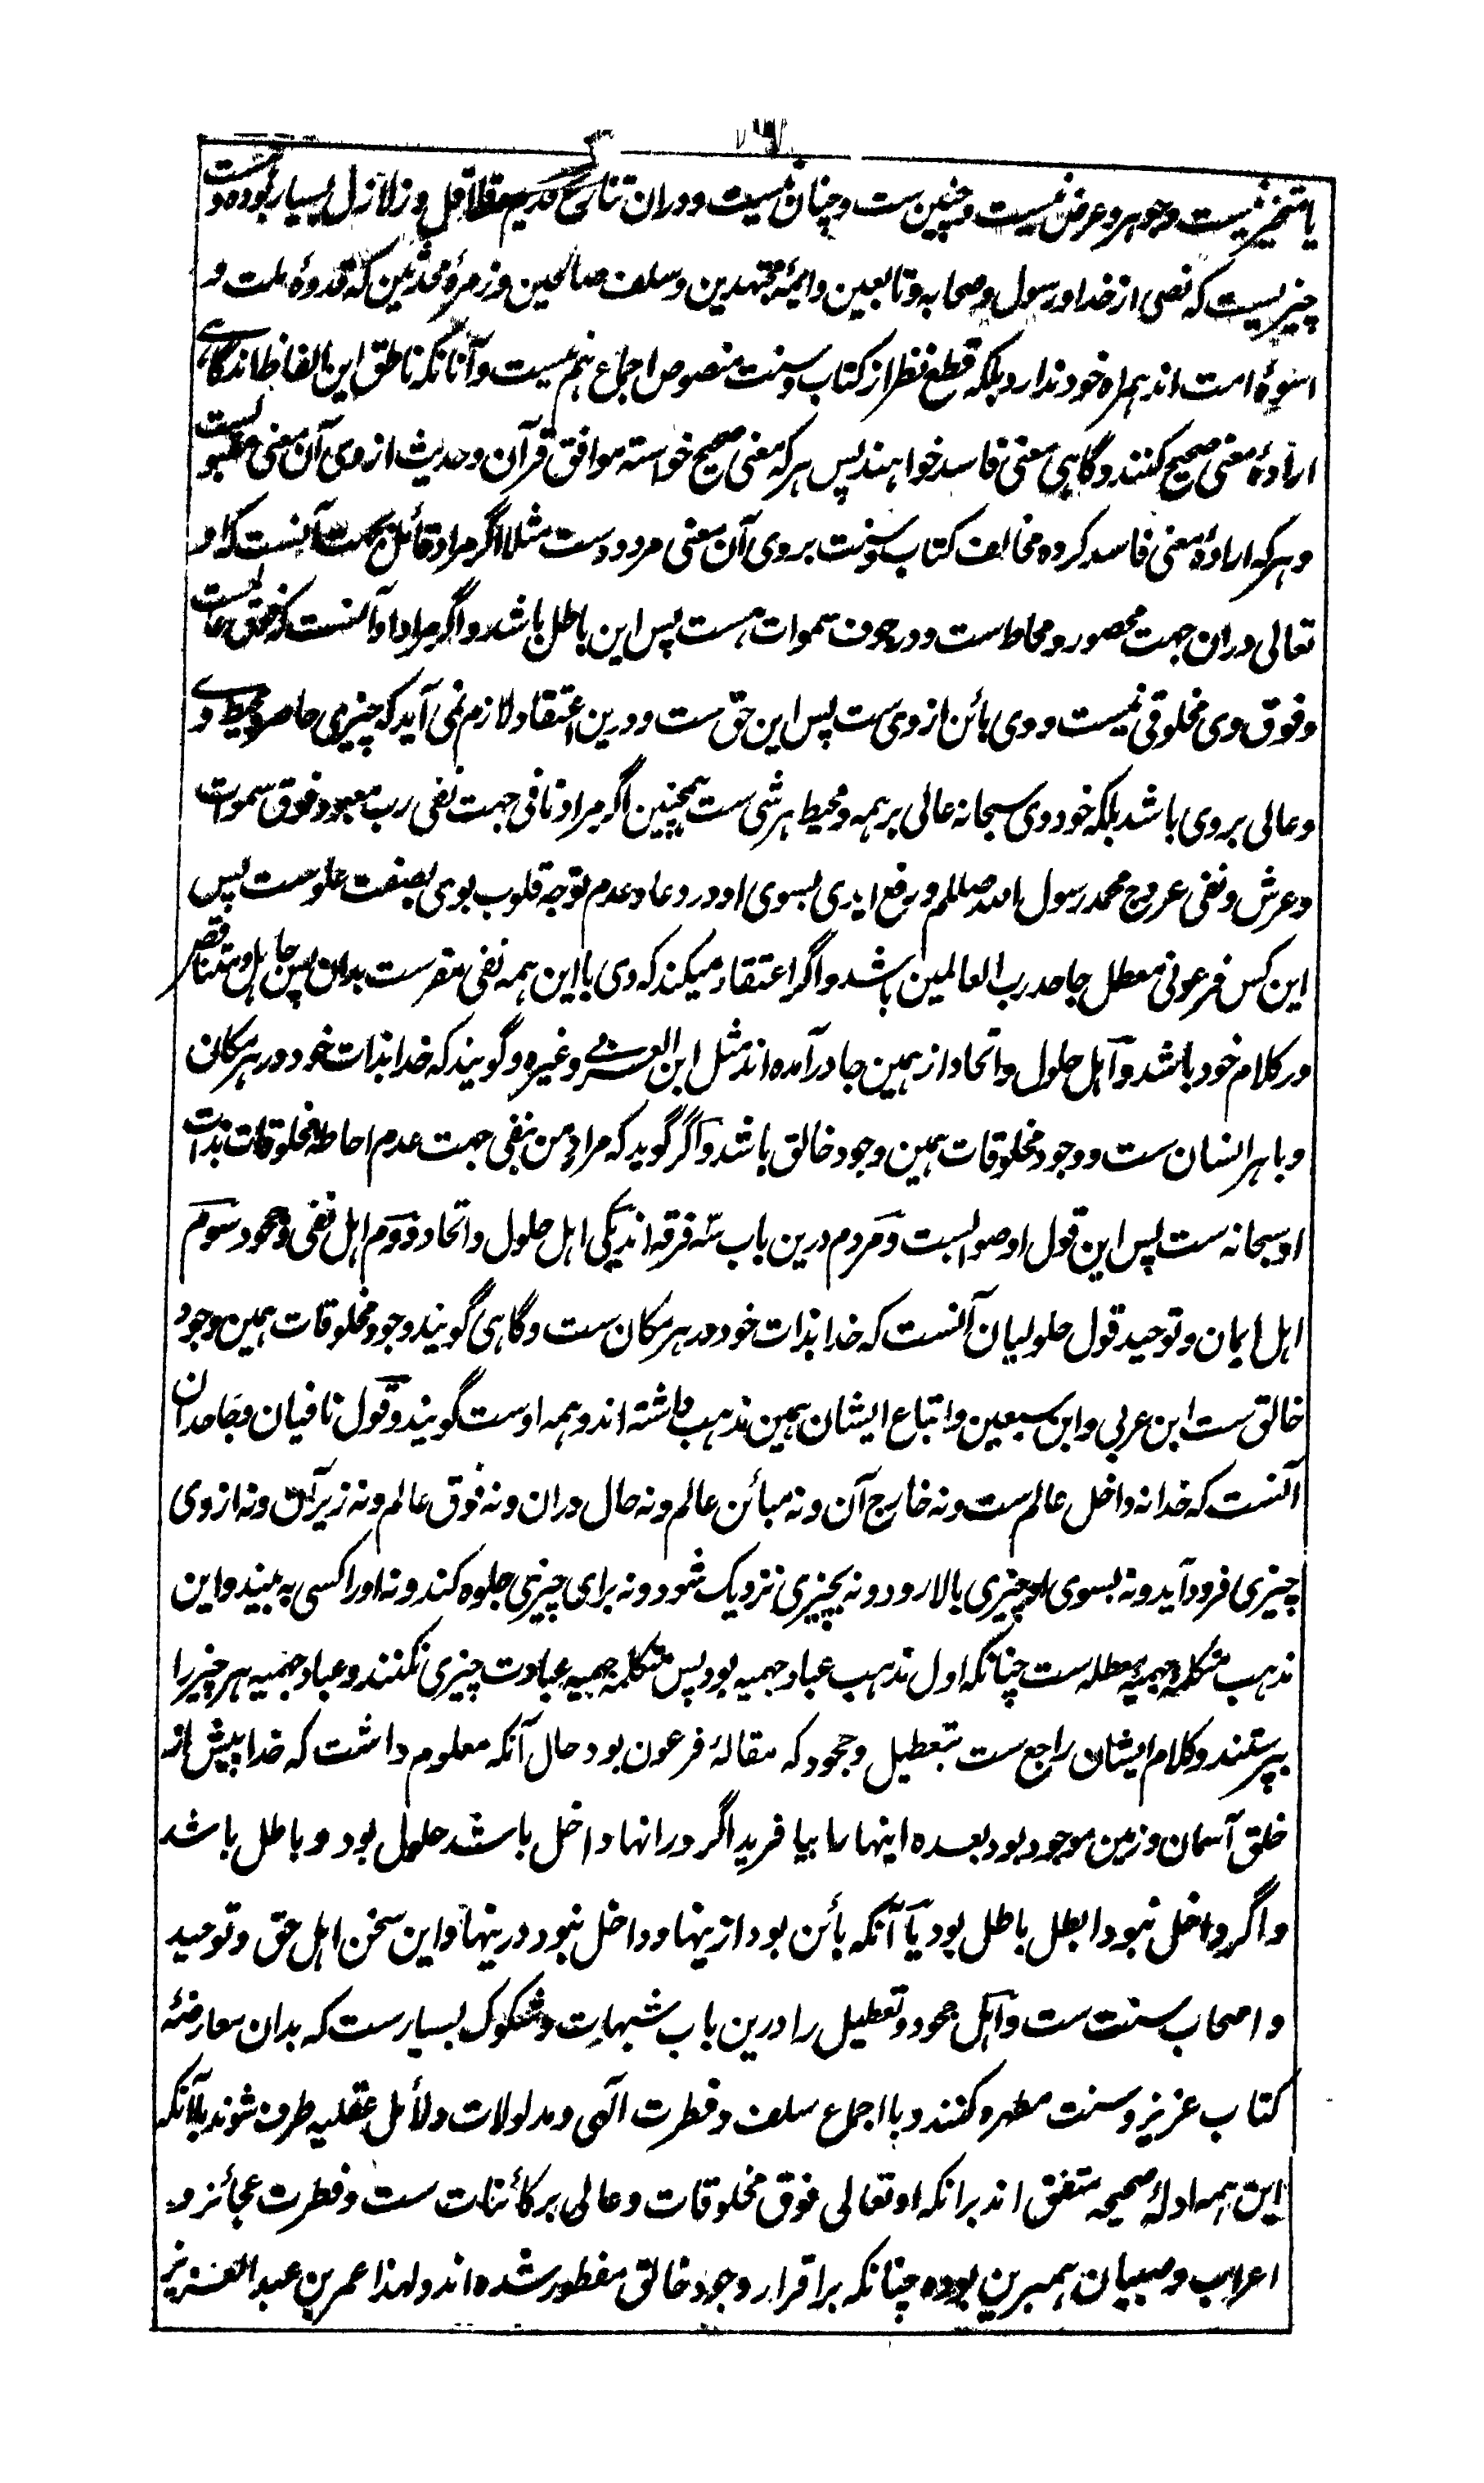 یا متحیز نیست وجوهر وعرض نیست وچنین ست وچنان نیست ودران تنازع قدیم وقلاقل وزلازل بسیار بوده ست
چیزیست که نصی از خدا ورسول وصحابه وتابعین وایمۀ مجتهدین وسلف صالحین وزمرۀ محدثین که قدوۀ ملت و
اسوۀ امت اند همراه خود ندارد بلکه قطع نظر از کتاب وسنت منصوص اجماع هم نیست وآنانکه ناطق این الفاظ اند گاهی
ارادۀ معنی صحیح کنند وگاهی معنی فاسد خواهند پس هرکه معنی صحیح خواسته موافق قرآن وحدیث ازوی آن معنی مقبولست
وهرکه ارادۀ معنی فاسد کرده مخالف کتاب وسنت بروی آن معنی مردودست مثلا اگر مراد قائل بجهت آنست که او
تعالی دران جهت محصور ومحاط است ودرجوف سموات هست پس این باطل باشد واگر مراد او آنست که فوق عالمست
وفوق وی مخلوقی نیست و وی بائن ازوی ست پس این حق ست ودرین اعتقاد لازم نمی آید که چیزی حاصر ومحیط وی
وعالی بروی باشد بلکه خود وی سبحانه عالی برهمه ومحیط هرشی ست همچنین اگر مراد نافی جهت نفی رب معبود فوق سموات
وعرش ونفی عروج محمد رسول الله صللم ورفع ایدی بسوی او در دعا وعدم توجه قلوب بوی بصفت علوست پس
این کس فرعونی معطل جاحد رب العالمین باشد واگر اعتقاد میکند که وی با این همه نفی مقرست بدان پس جاهل ومتناقض
در کلام خود باشد وآهل حلول واتحاد از همین جا درآمده اند مثل ابن العربی وغیره وگویند که خدا بذات خود در هرمکان
وبا هر انسان ست ووجود مخلوقات همین وجود خالق باشد وآگر گوید که مراد من بنفی جهت عدم احاطۀ مخلوقات بذات
او سبحانه ست پس این قول او صوابست ومردم درین باب سه فرقه اند یکی اهل حلول واتحاد دوم اهل نفی وجحود سوم
اهل ایمان وتوحید قول حلولیان آنست که خدا بذات خود در هرمکان ست وگاهی گویند وجود مخلوقات همین وجود
خالق ست ابن عربی وابن سبعین واتباع ایشان همین مذهب داشته اند وهمه اوست گویند وقول نافیان وجاحدان
آنست که خدا نه داخل عالم ست ونه خارج آن ونه مبائن عالم ونه حال دران ونه فوق عالم ونه زیر آن ونه ازوی
چیزی فرود آید ونه بسوی او چیزی بالا رود ونه بچیزی نزدیک شود ونه برای چیزی جلوه کند ونه اورا کسی به بیند واین
مذهب متکلمۀ جهمیۀ معطله ست چنانکه اول مذهب عباد جهمیه بود پس متکلمۀ جهمیه عبادت چیزی نکنند وعباد جهمیه هرچیز را
بپرستند وکلام ایشان راجع ست بتعطیل وجحود که مقالۀ فرعون بود حال آنکه معلوم داشت که خدا پیش از
خلق آسمان وزمین موجود بود بعده اینها را بیافرید اگر درانها داخل باشد حلول بود وباطل باشد
واگر داخل نبود ابطل باطل بود یا آنکه بائن بود ازینها وداخل نبود درینها واین سخن اهل حق وتوحید
واصحاب سنت ست وآهل جحود وتعطیل را درین باب شبهات وشکوک بسیارست که بدان معارضۀ
کتاب عزیز وسنت مطهره کنند وبا اجماع سلف وفطرت آلهی ومدلولات دلائل عقلیه طرف شوند بلاآنکه
این همه ادلۀ صحیحه متفق اند برانکه او تعالی فوق مخلوقات وعالی برکائنات ست وفطرت عجائز و
اعراب وصبیان همبرین بوده چنانکه براقرار وجود خالق مفطور شده اند ولهذا عمر بن عبد العزیز